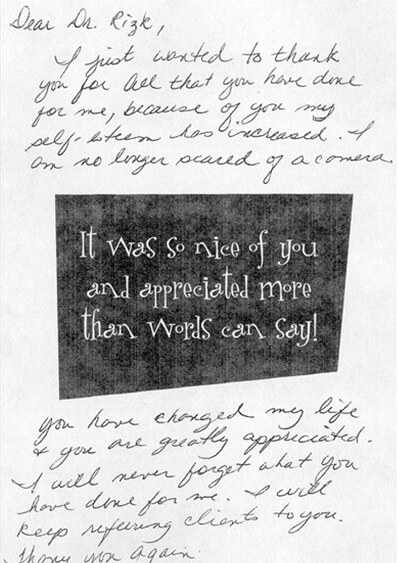 Dear Dr. Rizk,
I just wanted to thank
you for all that you have done
for me, because of you my
self-esteem has increased. I
am no longer scared of a camera.
It was so nice of you
and appreciated more
than words can say!
You have changed my life
& you are greatly appreciated.
I will never forget what you
have done for me. I will
keep refering clients to you.
Thank you again.